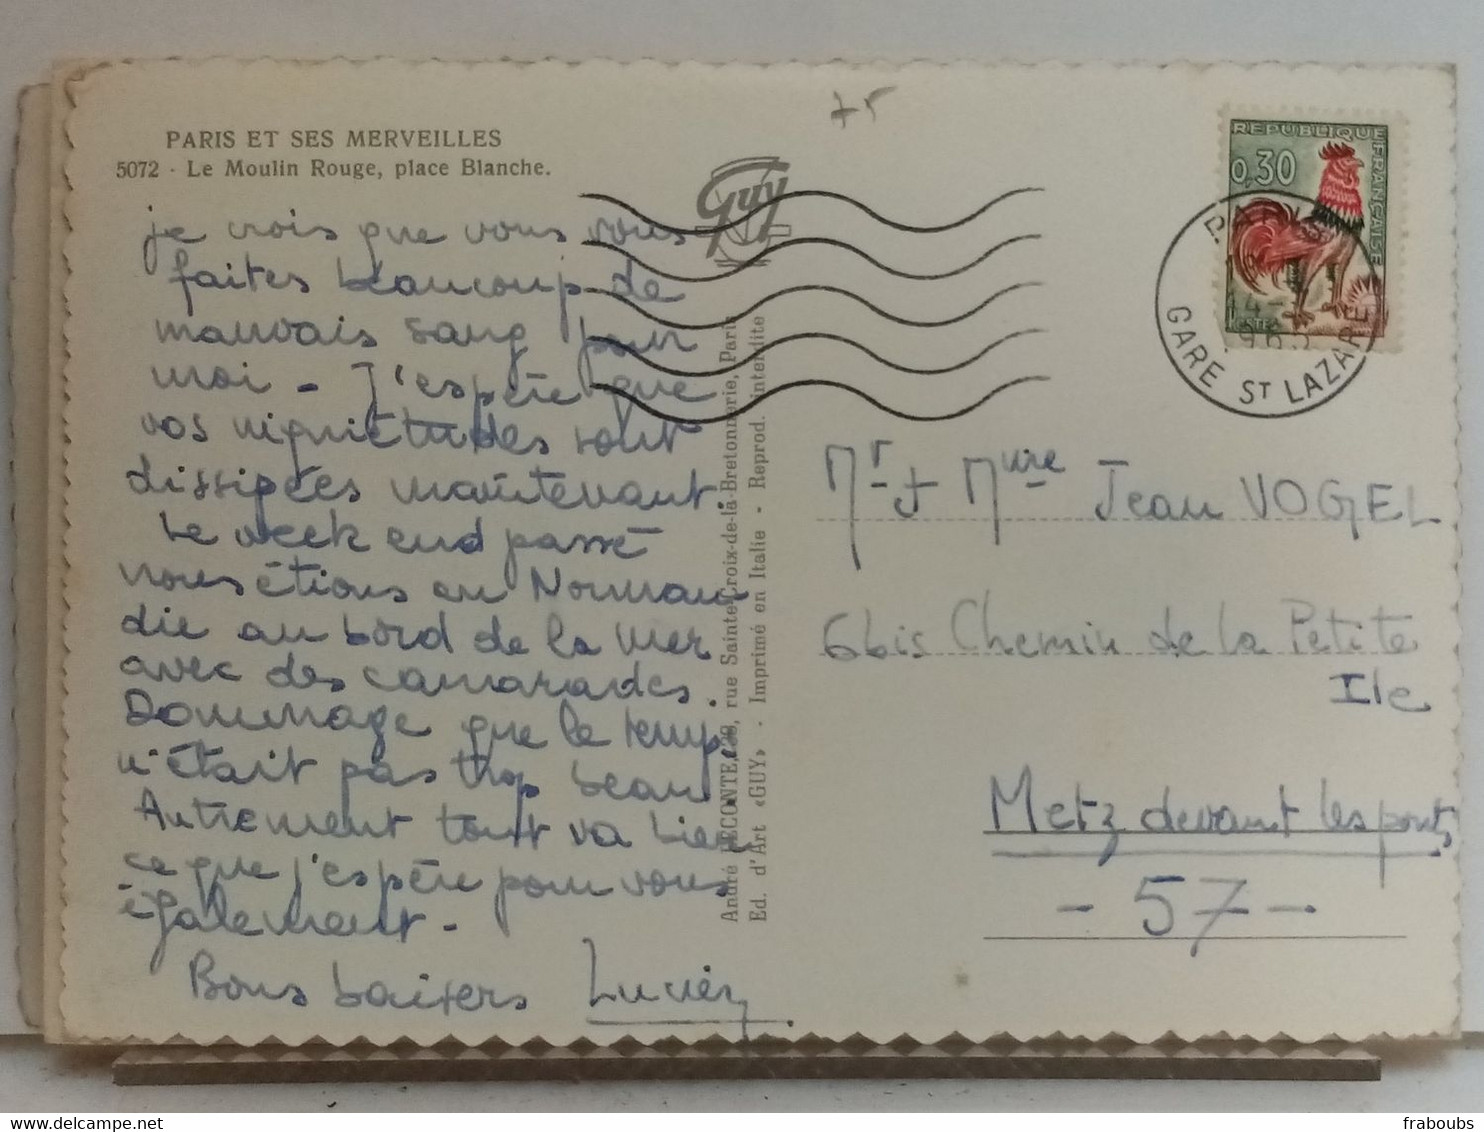 75
PARIS ET SES MERVEILLES
5072 - Le Moulin Rouge, place Blanche.
je crois que vous vous
faites beaucoup de
mauvais sang pour
moi - J'espère que
vos inquiétudes sont
dissipées maintenant.
Le week end passé
nous étions en Norman
die au bord de la mer
avec des camarades.
Dommage que le temps
n'était pas trop beau
Autrement tout va bien
ce que j'espère pour vous
également -
Bons baisers Lucien
Guy
André LECONTE, 38, rue Sainte-Croix-de-la-Bretonnerie, Paris
Ed. d'Art «GUY» - Imprimé en Italie - Reprod. interdite
REPUBLIQUE FRANÇAISE
0,30
POSTES
PARIS
18
14-
1965
GARE ST LAZARE
Mr et Mme Jean VOGEL
6bis Chemin de la Petite
Ile
Metz devant les ponts
- 57 -
fraboubs